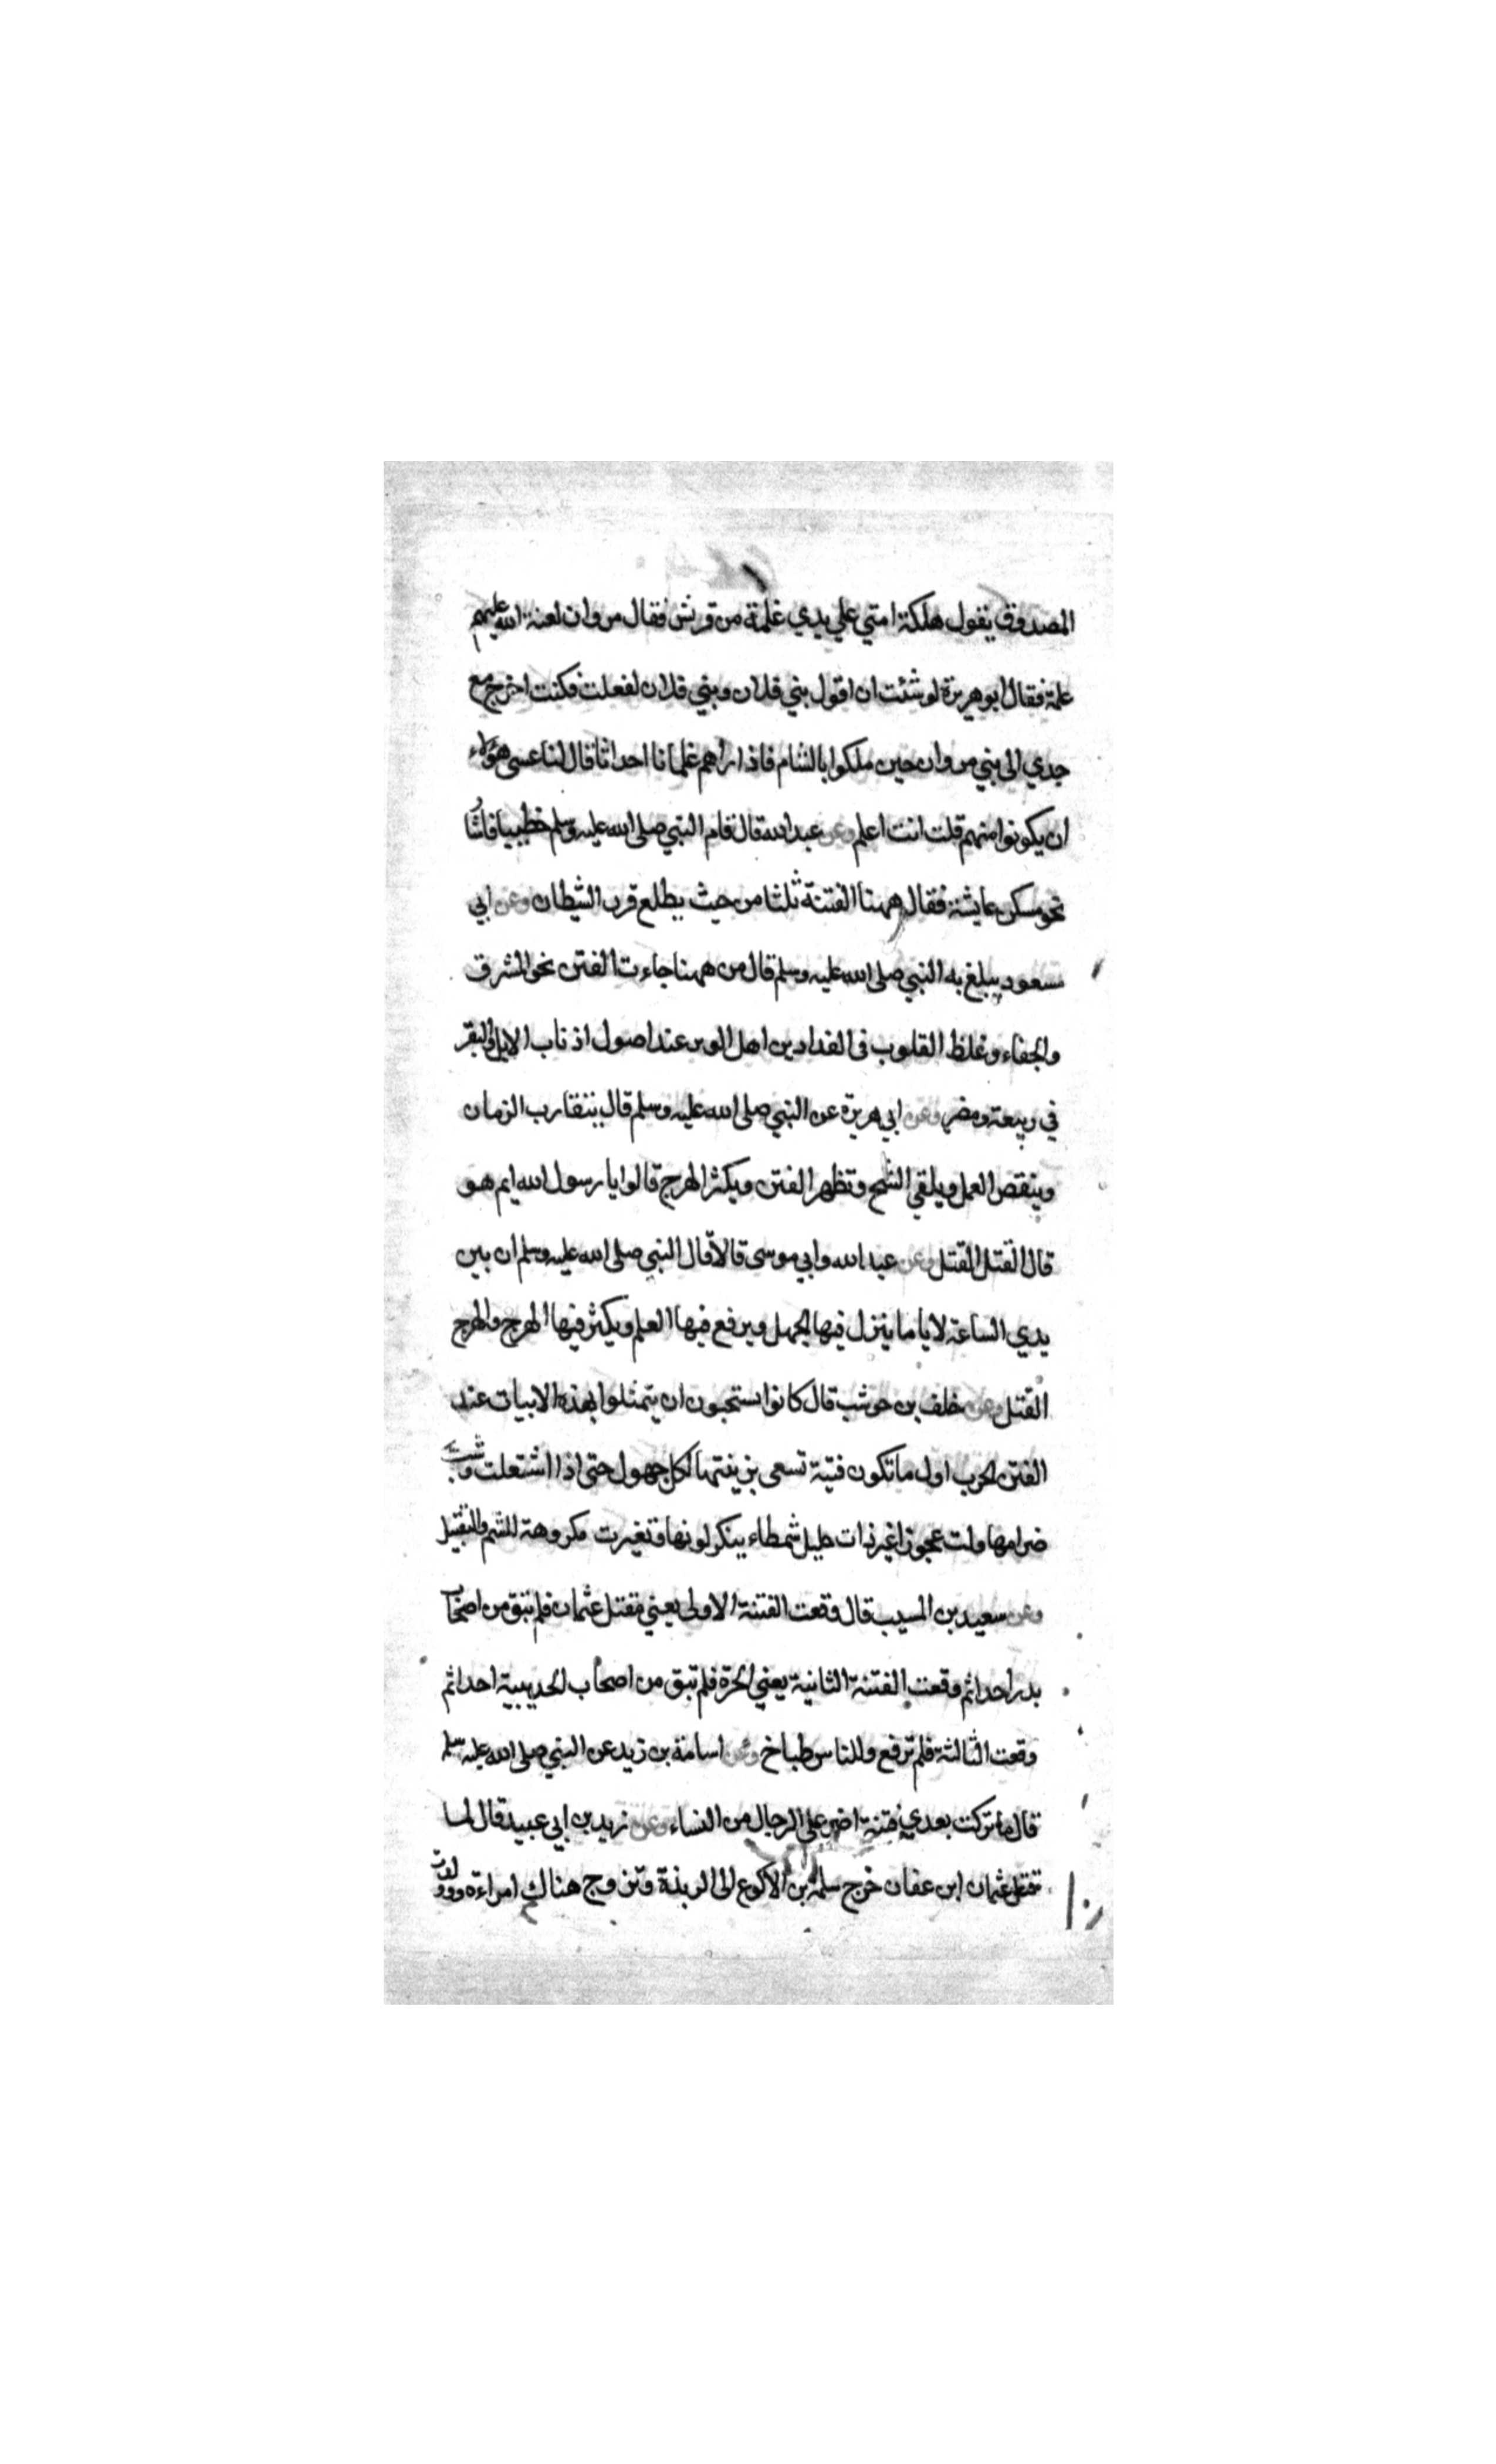 المصدوق يقول هلكة امتي علي يدي غلمة من قريش فقال مروان لعنة الله عليهم
غلمة فقال ابو هريرة لو شئت ان اقول بني فلان وبني فلان لفعلت فكنت اخرج مع
جدي الى بني مروان حين ملكوا بالشام فاذا راهم غلمانا احداثا قال لنا عسى هؤلاء
ان يكونوا منهم قلت انت اعلم وعن عبد الله قال قام النبي صلى الله عليه وسلم خطيبا فاشا
نحو مسكن عايشة فقال ههنا الفتنة ثلثا من حيث يطلع قرن الشيطان وعن ابي
مسعود يبلغ به النبي صلى الله عليه وسلم قال من ههنا جاءت الفتن نحو المشرق
والجفاء وغلظ القلوب فى الفدادين اهل الوبر عند اصول اذناب الابل والبقر
في ربيعة ومضر وعن ابي هريرة عن النبي صلى الله عليه وسلم قال يتقارب الزمان
وينقص العمل ويلقي الشح وتظهر الفتن ويكثر الهرج قالوا يا رسول الله ايم هو
قال القتل القتل وعن عبد الله وابي موسى قالا قال النبي صلى الله عليه وسلم ان بين
يدي الساعة لاياما ينزل فيها الجهل ويرفع فيها العلم ويكثر فيها الهرج والهرج
القتل وعن خلف بن حوشب قال كانوا يستحبون ان يتمثلوا بهذه الابيات عند
الفتن الحرب اول ما تكون فتية تسعى بزينتها لكل جهول حتى اذا اشتعلت وشب
ضرامها ولت عجوزا غير ذات حليل شمطاء ينكر لونها وتغيرت مكروهة للشم والتقبيل
وعن سعيد بن المسيب قال وقعت الفتنة الاولى يعني مقتل عثمان فلم تبق من اصحاب
بدر احدا ثم وقعت الفتنة الثانية يعني الحرة فلم تبق من اصحاب الحديبية احدا ثم
وقعت الثالثة فلم ترفع وللناس طباخ وعن اسامة بن زيد عن النبي صلى الله عليه وسلم
قال ما تركت بعدي فتنة اضر على الرجال من النساء وعن زيد بن ابي عبيد قال لما
قتل عثمان ابن عفان خرج سلمة بن الاكوع الى الربذة وتزوج هناك امراءة وولدت